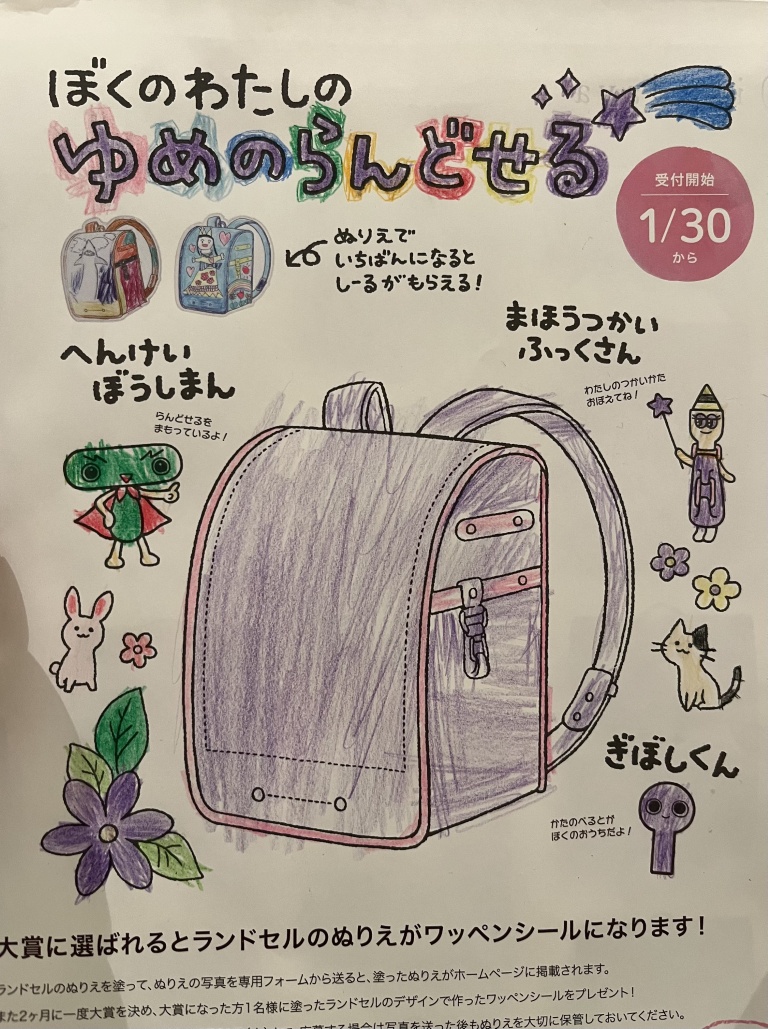 ぼくのわたしの
ゆめのらんどせる
受付開始
1/30
から
ぬりえで
いちばんになると
しーるがもらえる!
まほうつかい
ふっくさん
わたしのつかいかた
おぼえてね!
へんけい
ぼうしまん
らんどせるを
まもっているよ!
ぎぼしくん
かたのべるとが
ぼくのおうちだよ!
大賞に選ばれるとランドセルのぬりえがワッペンシールになります!
ランドセルのぬりえを塗って、ぬりえの写真を専用フォームから送ると、塗ったぬりえがホームページに掲載されます。
また2ヶ月に一度大賞を決め、大賞になった方1名様に塗ったランドセルのデザインで作ったワッペンシールをプレゼント!
応募する場合は写真を送った後もぬりえを大切に保管しておいてください。